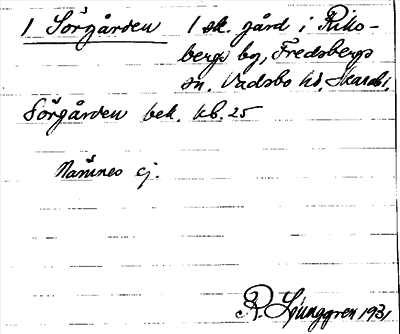 1 Sörgården 1 sk. gård i Riks-
bergs by, Fredsbergs
sn. Vadsbo hd, Skarabs,
Sörgården bek. kb. 25
Namnes ej.
R. Ljunggren 1931